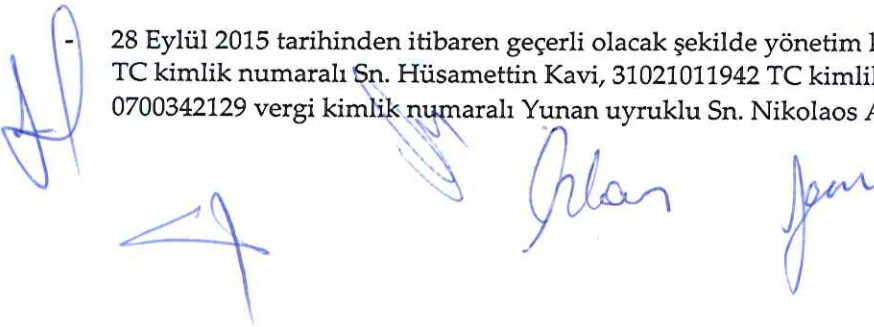 - 28 Eylül 2015 tarihinden itibaren geçerli olacak şekilde yönetim
TC kimlik numaralı Sn. Hüsamettin Kavi, 31021011942 TC kimli
0700342129 vergi kimlik numaralı Yunan uyruklu Sn. Nikolaos A